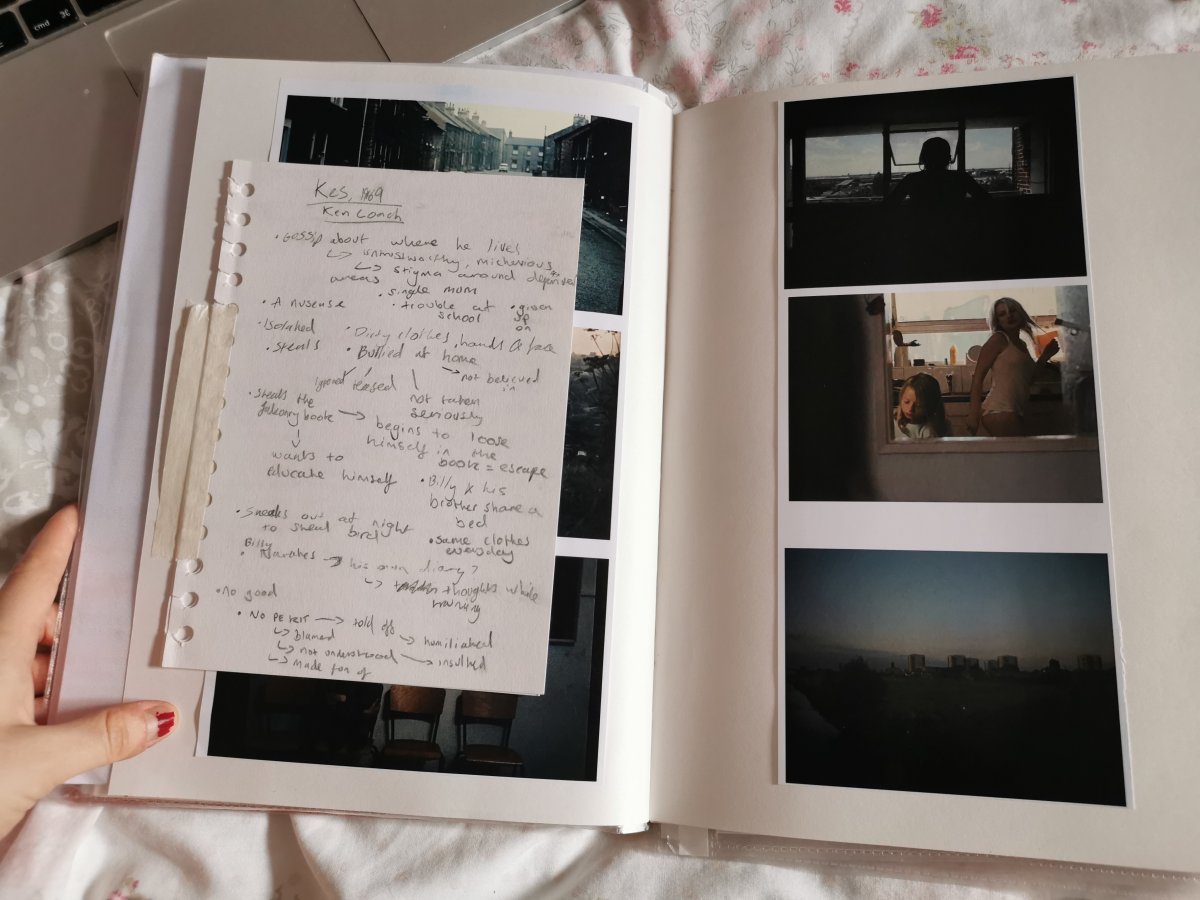 cmd ⌘
Kes, 1969
Ken Loach
• Gossip about where he lives
↳ untrustworthy, micheivious
↳ stigma around deprived
areas
• single mum
• A nusense • trouble at • given
school up
on
• Isolated • Dirty clothes, hands & face
• steals • Bullied at home
→ not believed
in
ignored teased not taken
seriously
• steals the
falconry book → begins to loose
himself in the
book = escape
↓
wants to
educate himself
• Billy & his
brother share a
bed
• Sneaks out at night
to steal bird
• same clothes
everyday
Billy
• Narrates → his own diary?
↳ thoughts while
running
• no good
• No PE KIT → told off → humiliated
↳ blamed
↳ not understood → insulted
↳ made fun of